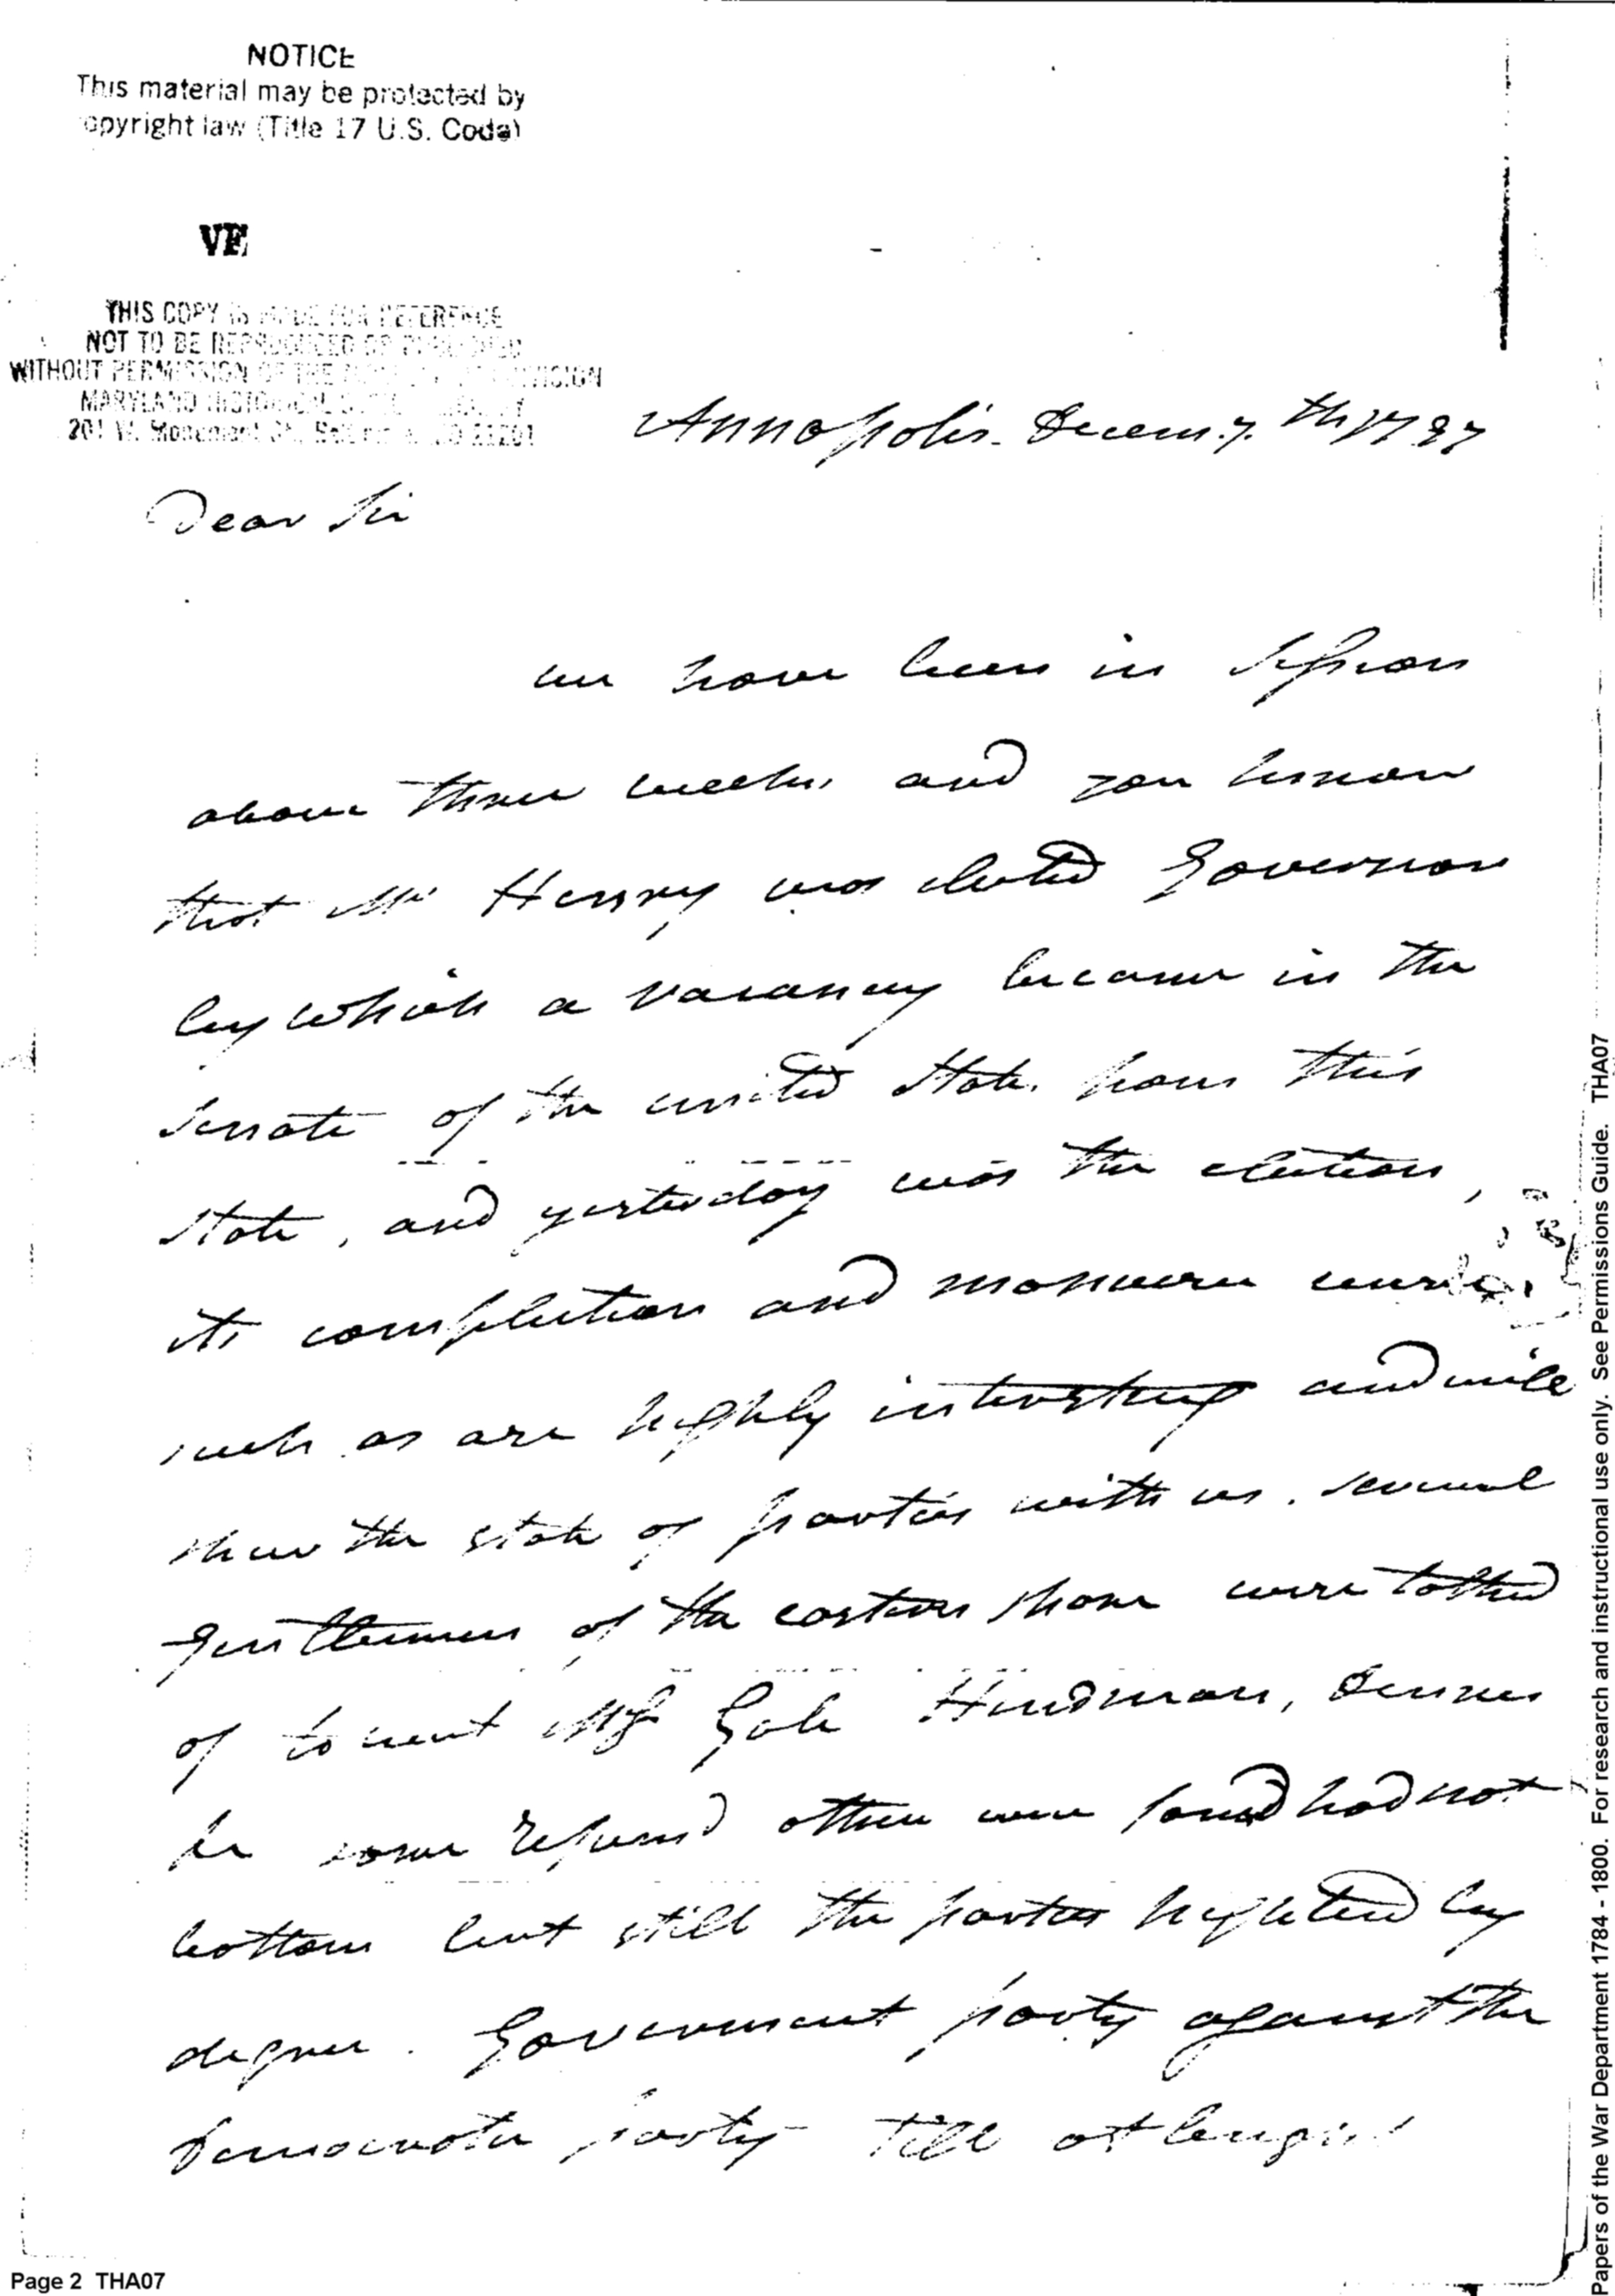 NOTICE
This material may be protected by
opyright law (Title 17 U.S. Code)
VF
THIS COPY IS MADE FOR REFERENCE
NOT TO BE REPRODUCED OR PUBLISHED
WITHOUT PERMISSION OF THE DIVISION
MARYLAND HISTORICAL
201 W. Monument St. 21201
Annapolis. Decem. 7. th 1797
Dear Sir
we have been in Session
above three weeks, and you know
that Mr Henry was elected Governor
by which a vacancy became in the
Senate of the united State. from this
State, and yesterday was the election,
its completion and manuvere
such as are highly interesting and will
shew the state of parties with us. several
Gentlemen of the eastern shore were talked
of to wit Mr Gale Hindman, Dennis
&c some refused others were found had not
bottom but still the parties heighted by
degree. Government party against the
Democratic party till at length
Page 2 THA07
Papers of the War Department 1784 - 1800. For research and instructional use only. See Permissions Guide. THA07